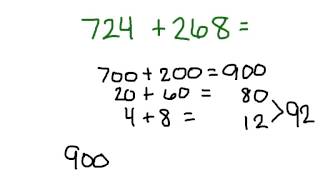 724 + 268 =
700 + 200 = 900
20 + 60 = 80
4 + 8 = 12 > 92
900